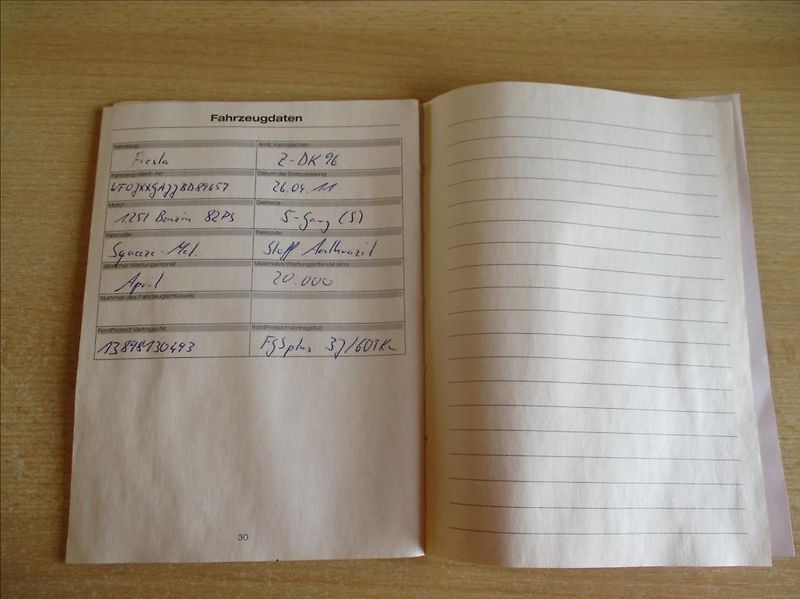 Fahrzeugdaten
Fahrzeug Amtl. Kennzeichen
Fiesta Z-DK 96
Fahrzeug-Ident.-Nr. Datum der Erstzulassung
WF0JXXGAJJBD89657 26.04.11
Motor Getriebe
1251 Benzin 82PS 5-Gang (S)
Farbcode Trimcode
Squeeze-Met. Stoff Anthrazit
Jährlicher Wartungsmonat Maximales Wartungsintervall (km)
April 20.000
Nummer des Fahrzeugschlüssels
FordProtect Vertrags-Nr. FordProtect Vertragstyp
13898130493 FGSplus 3J/60TKm
30